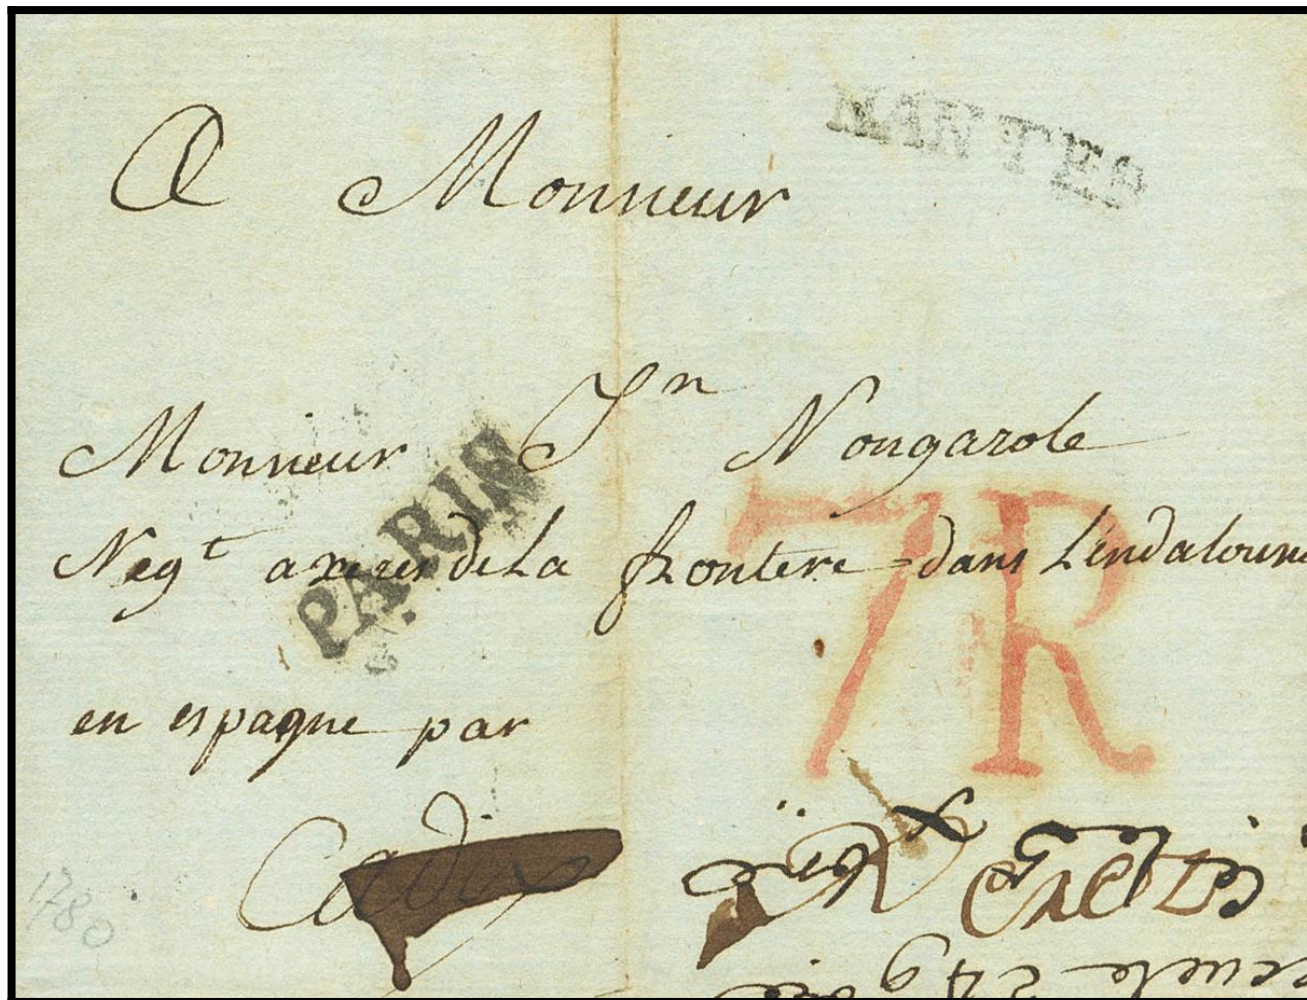 NANTES
A Monsieur
Monsieur Jn Nougarole
PARIN
7R
Negt a xeres de La frontere = dans L'endalousie
en espagne par
Cadix
1780